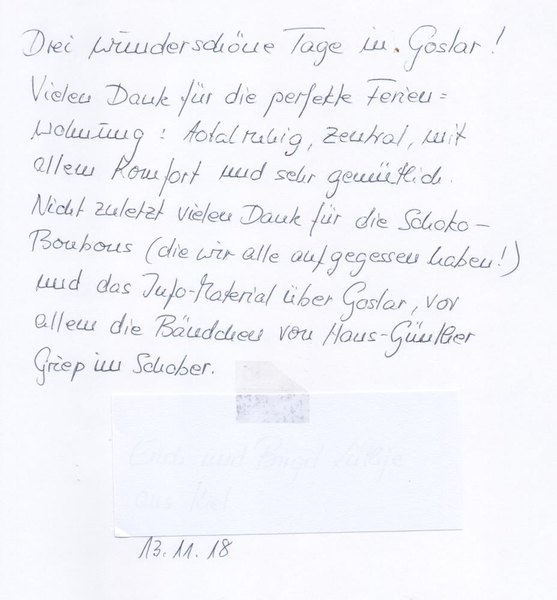 Drei wunderschöne Tage in Goslar!
Vielen Dank für die perfekte Ferien=
wohnung: total ruhig, zentral, mit
allem Komfort und sehr gemütlich.
Nicht zuletzt vielen Dank für die Schoko-
Bonbons (die wir alle aufgegessen haben!)
und das Info-Material über Goslar, vor
allem die Bändchen von Hans-Günther
Griep im Schober.
und
aus
13.11.18